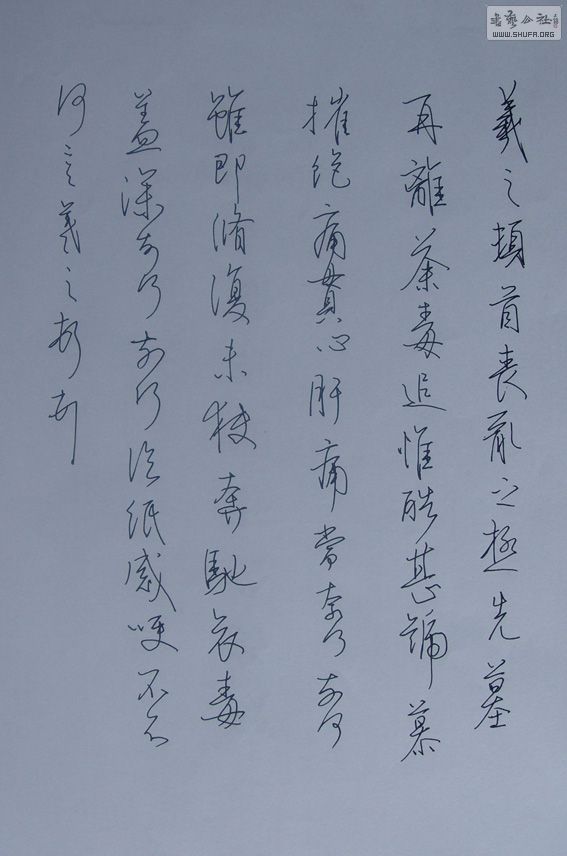 羲之頓首喪亂之極先墓
再離荼毒追惟酷甚號慕
摧絕痛貫心肝痛當奈何奈何
雖即脩復未獲奔馳哀毒
益深奈何奈何臨紙感哽不知
何言羲之頓首
書藝公社
WWW.SHUFA.ORG